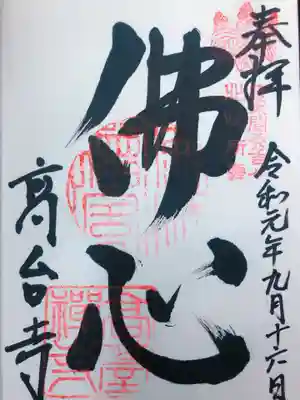 奉拝
令和元年九月十六日
佛心
高台寺